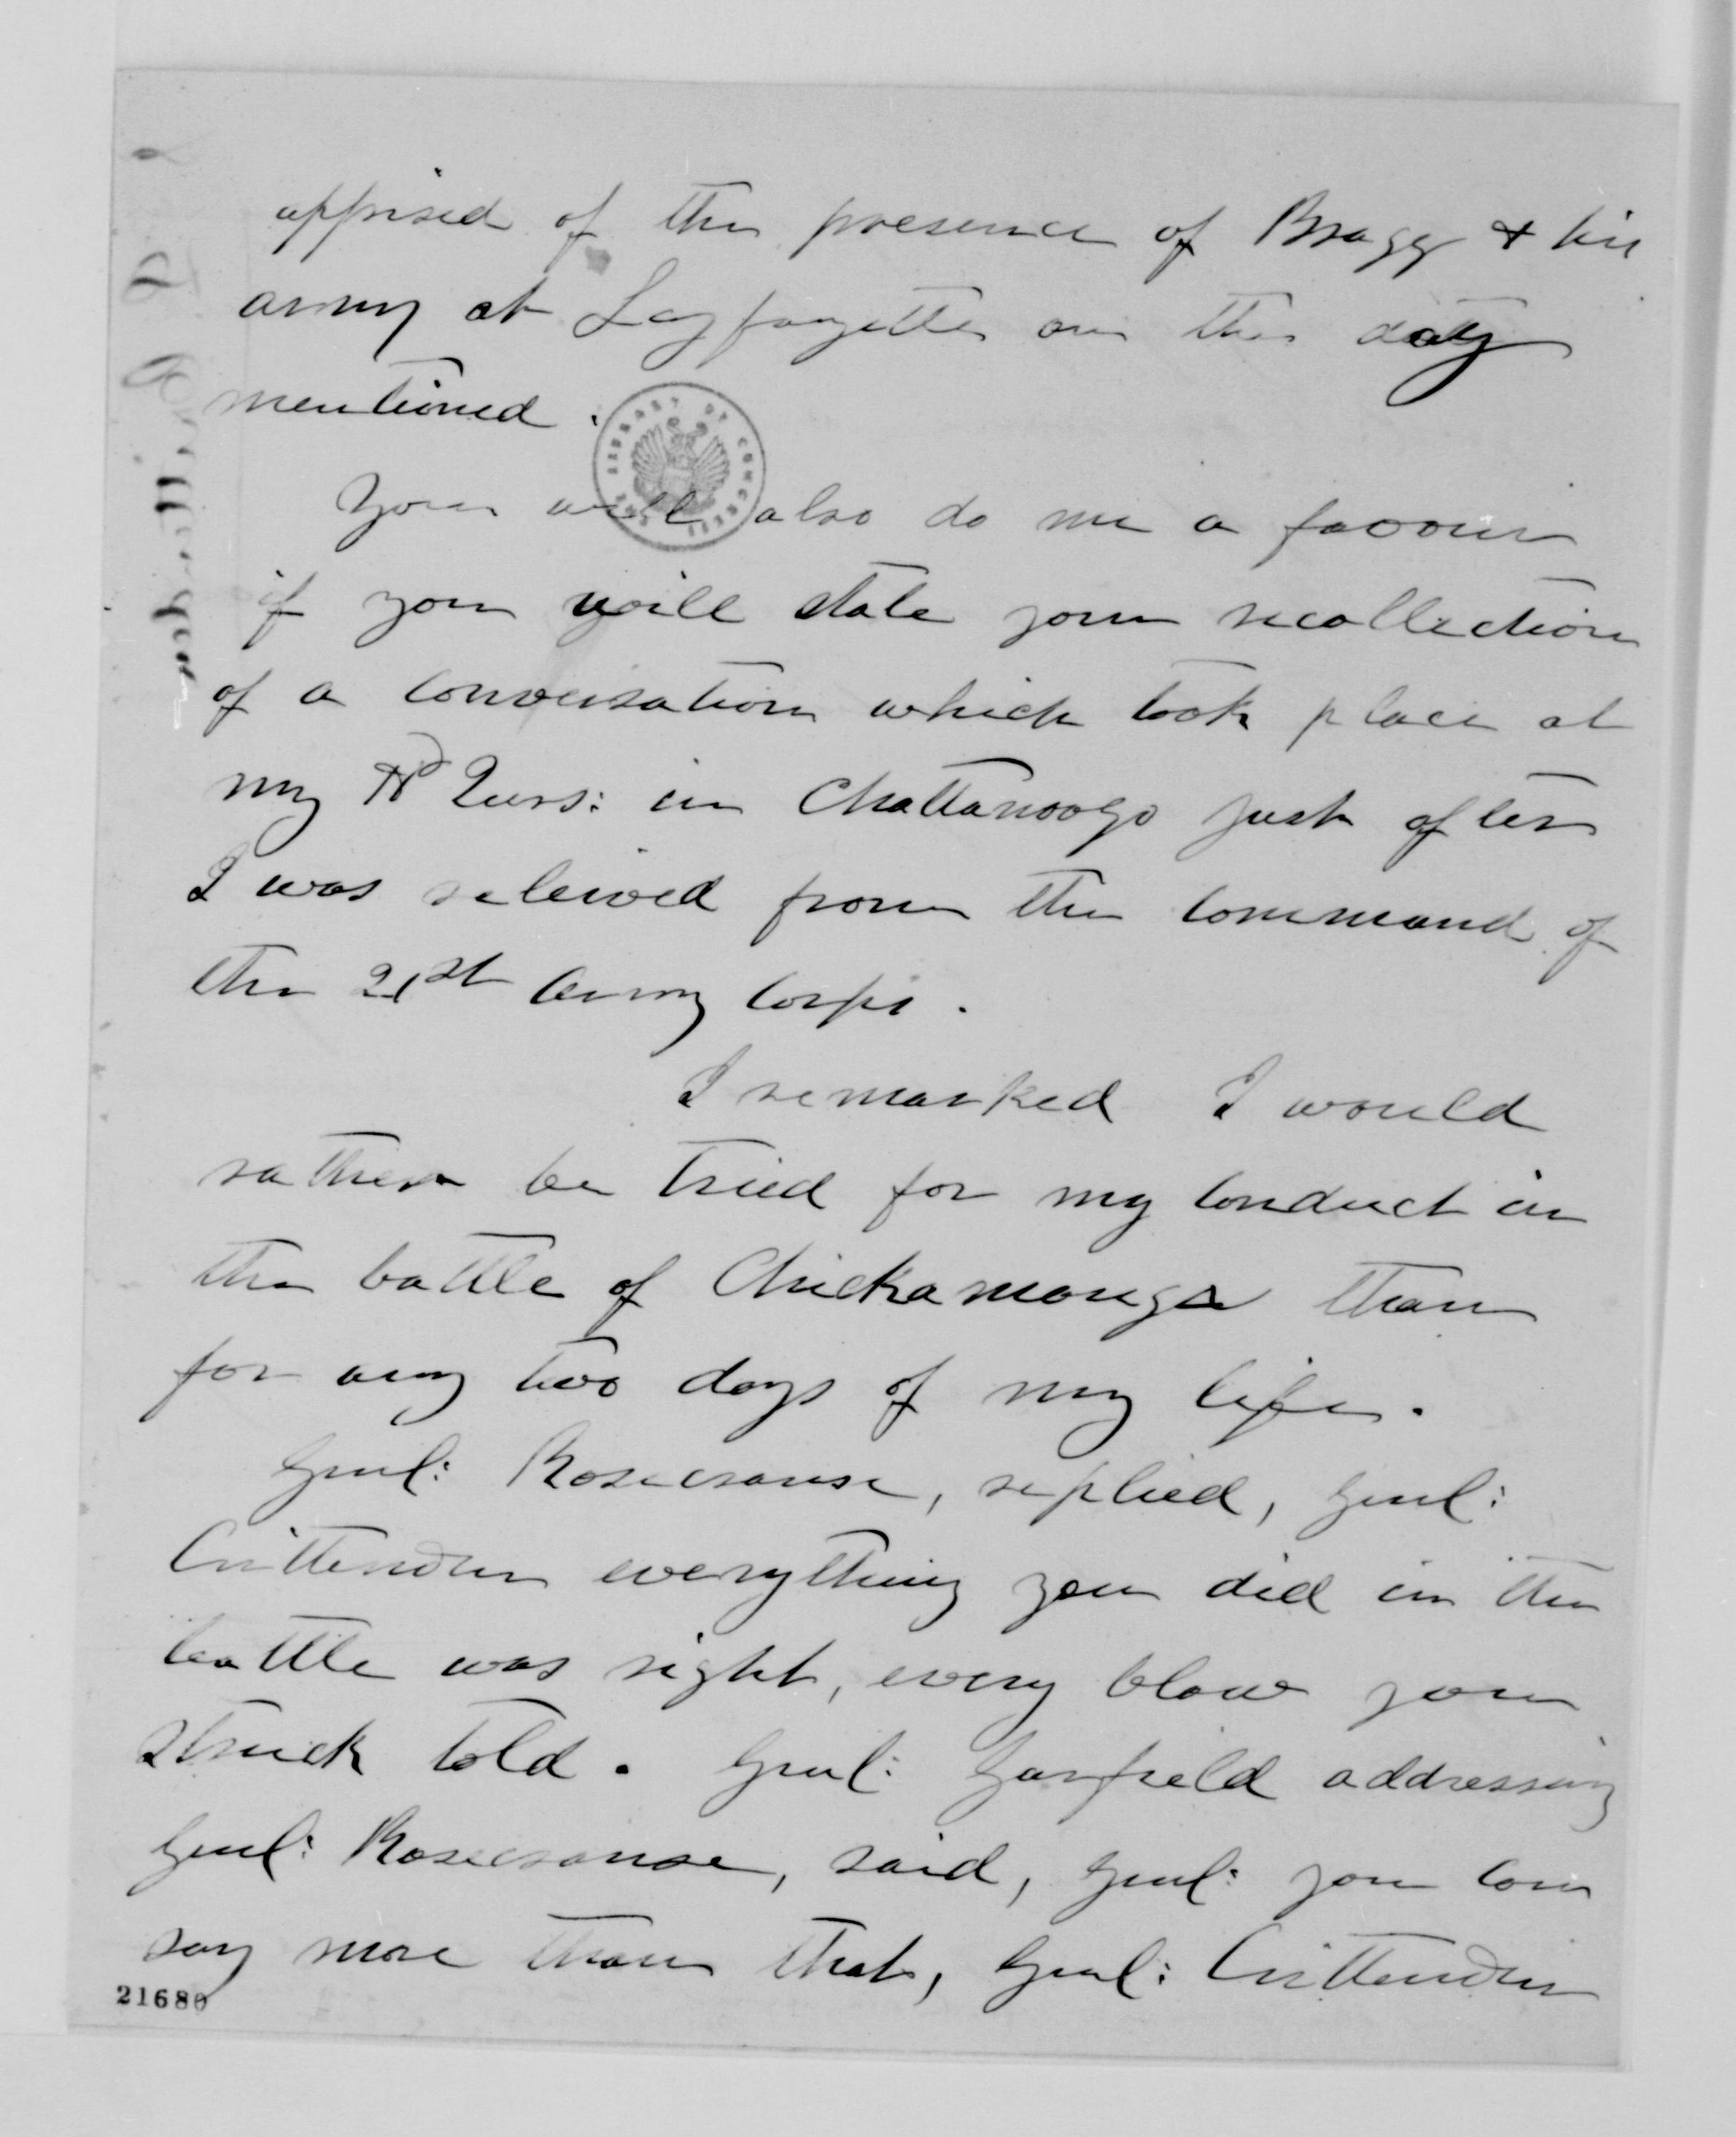 apprised of the presence of Bragg & his
army at Layfayette on the day
mentioned.
LIBRARY OF CONGRESS
You will also do me a favour
if you will state your recollection
of a conversation which took place at
my Hd Qurs: in Chattanooga just after
I was releived from the command of
the 21st Army Corps.
I remarked I would
rather be tried for my conduct in
the battle of Chickamauga than
for any two days of my life.
Genl: Rosecranse, replied, Genl:
Crittenden everything you did in the
battle was right, every blow you
struck told. Genl: Garfield addressing
Genl: Rosecranse, said, Genl: you can
say more than that, Genl: Crittenden
21680